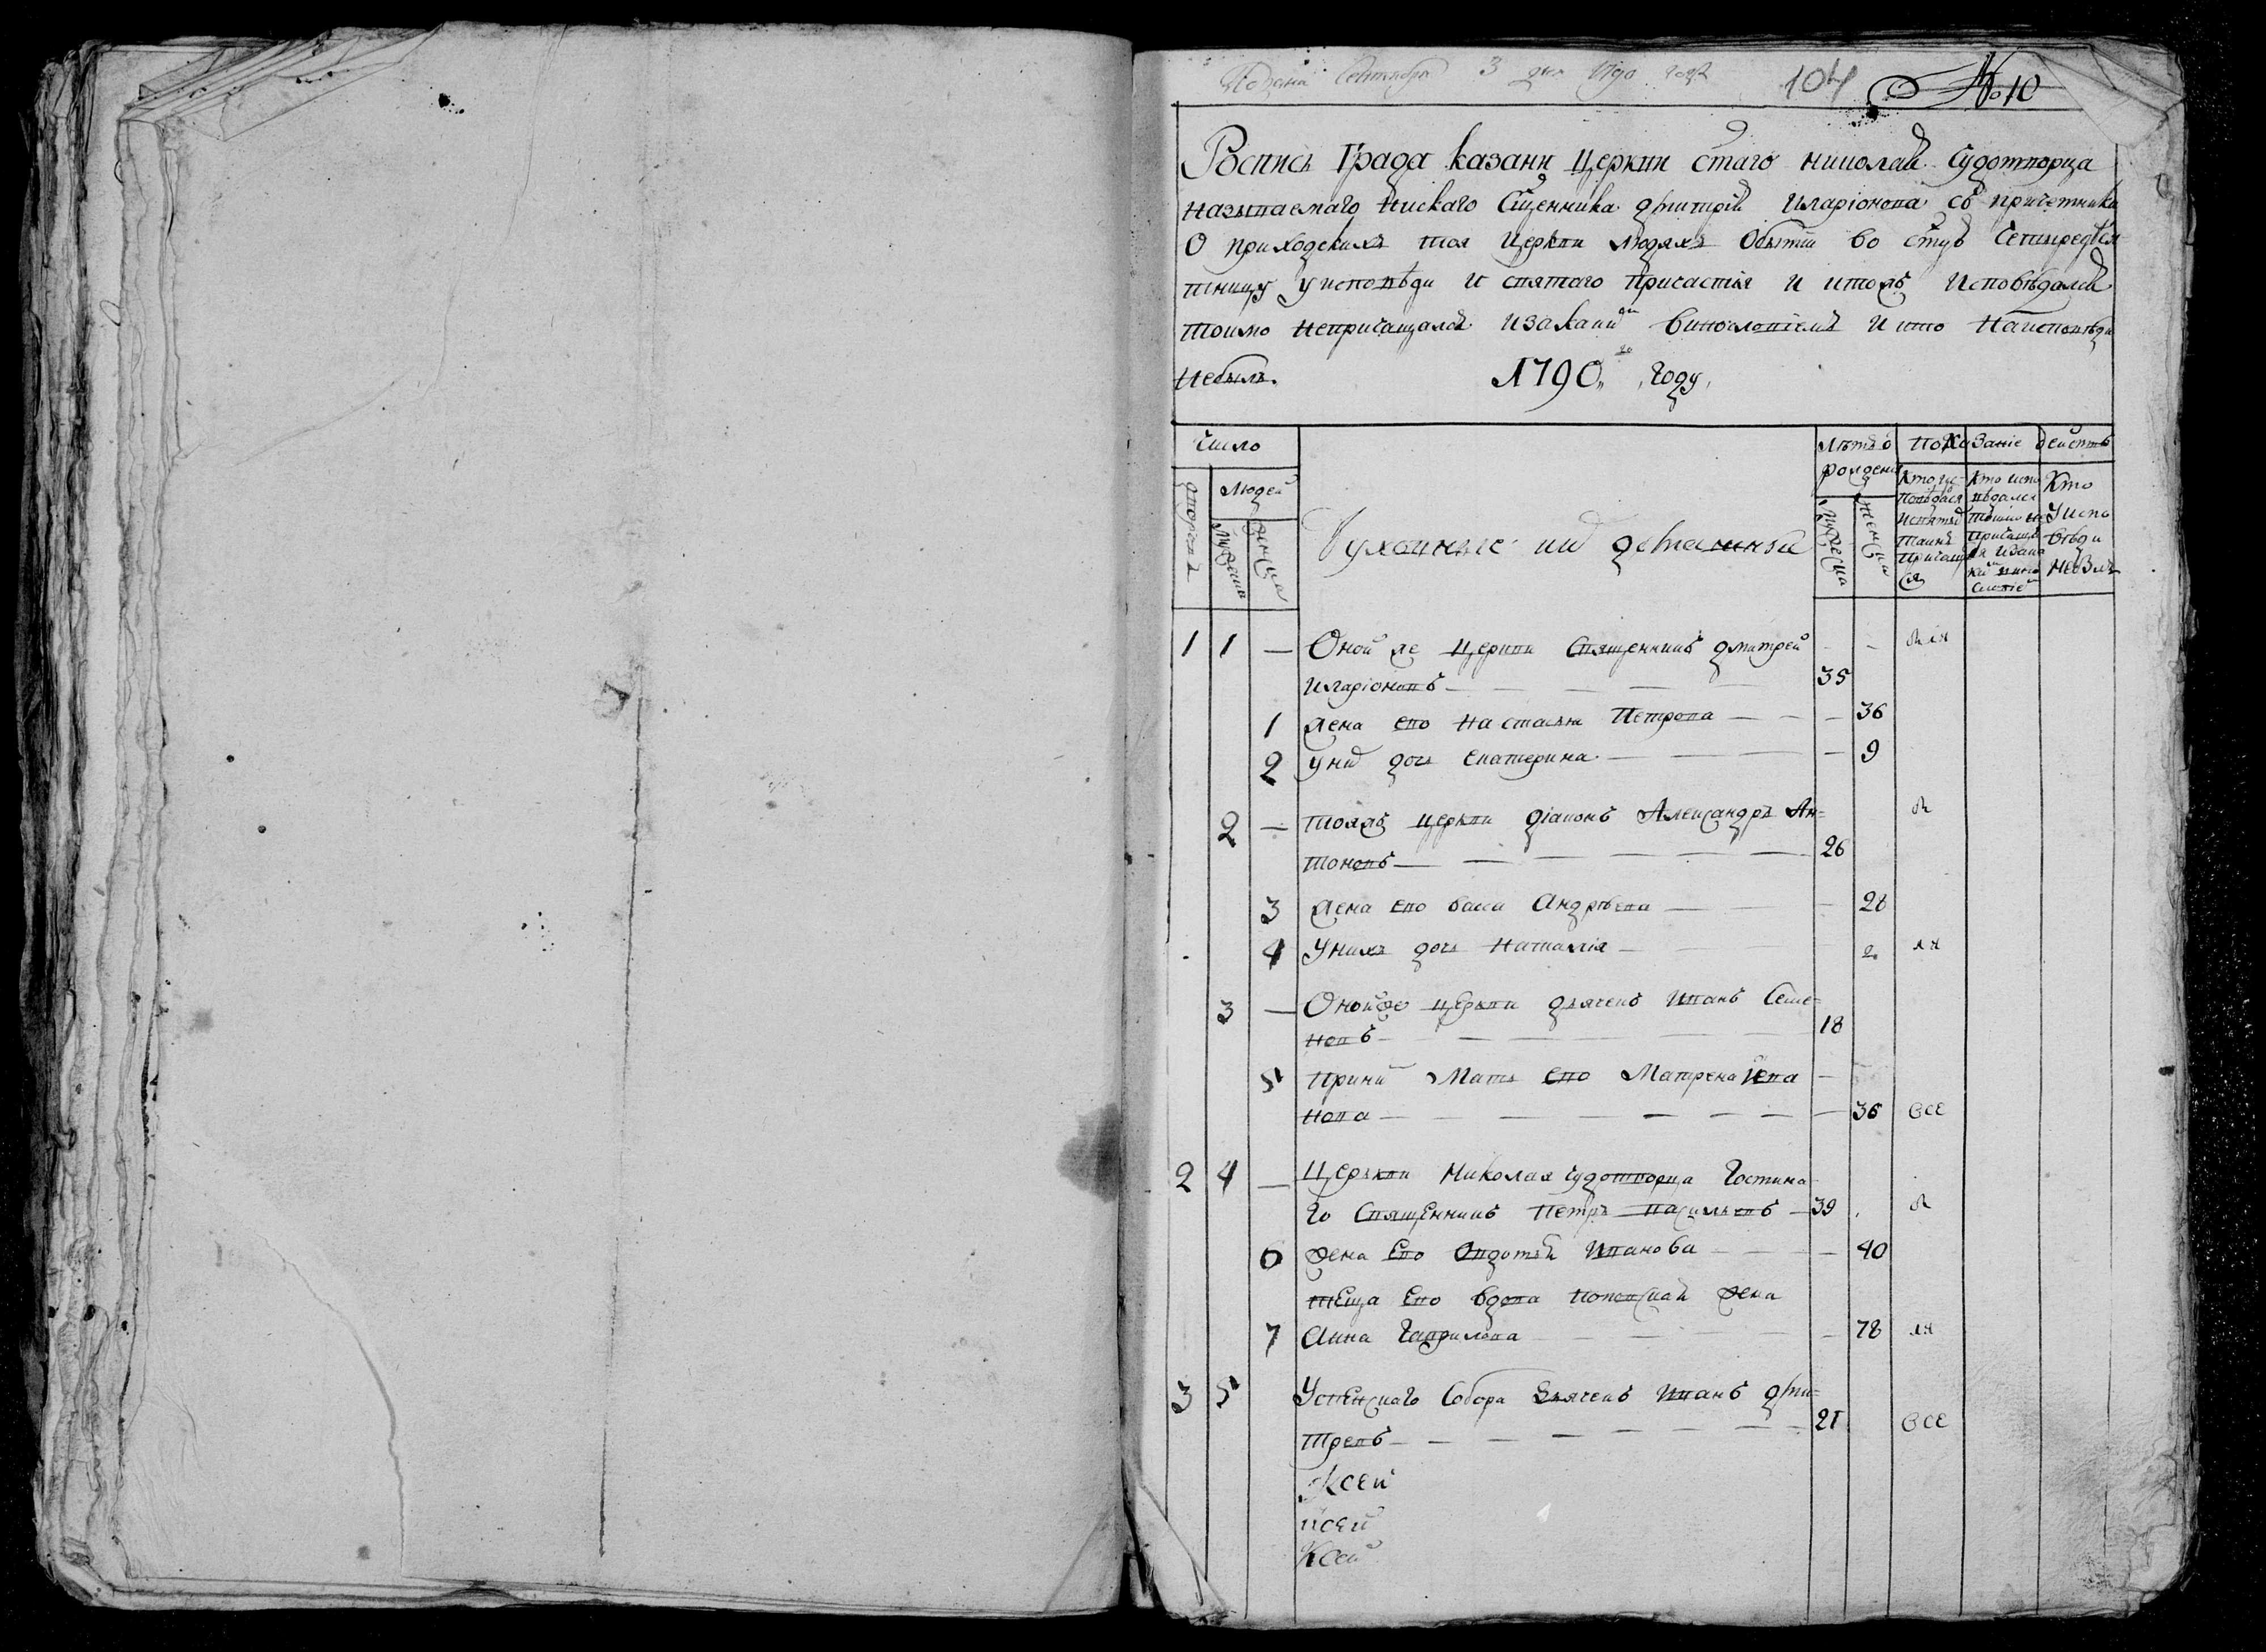 Подана Сентября 3 дня 1790 года
104 № 10
Роспись Града казани Церкви стаго николая Чудотворца
называемаго нискаго Сщенника дмитрія Иларіонова съ причетники
О приходскихъ тоя Церкви людяхъ Обытіи во стую Четыредеся
тницу у исповѣди и святаго причастія и ктожъ Исповѣдался
токмо непричащался изакаким Винословіемъ И кто Наисповѣди
небылъ.
1790го году
Число
Людей
дворовъ
мужеска
женска
Духовные и их домашніи
Лѣтъ о
рожденія
мужеска
женска
Показаніе действъ
Кто ис
повѣдася
и святых
таинъ
причаща
ся
Кто испо
вѣдался
токмо не
причащал
ся изака
ким вино
словіем
Кто
У испо
вѣди
небылъ
1 1 — Оной же церкви Священникъ дмитрей оли
Иларіоновъ 35
1 жена его настасья Петрова — 36
2 у них дочь екатерина — 9
2 — тояжъ церкви діаконъ Александръ Ан= о
тоновъ 26
3 жена его Васса Андрѣева — 28
4 У нихъ дочь наталія 2 ли
3 — Оной же церкви дьячекъ Иванъ Семе=
новъ 18
5 При нем Мать его Матрена Ива —
нова — 36 все
2 4 — Церькви Николая чудотворца Гостина
го Священникъ Петръ васильевъ 39 о
6 жена Его Овдотья Иванова — 40
теща Его вдова поповская жена
7 Анна Гаврилова — 78 ли
3 5 Успенскаго Собора Дьячекъ Иванъ дми=
тревъ 21 все
Ксей
ксей
Ксей